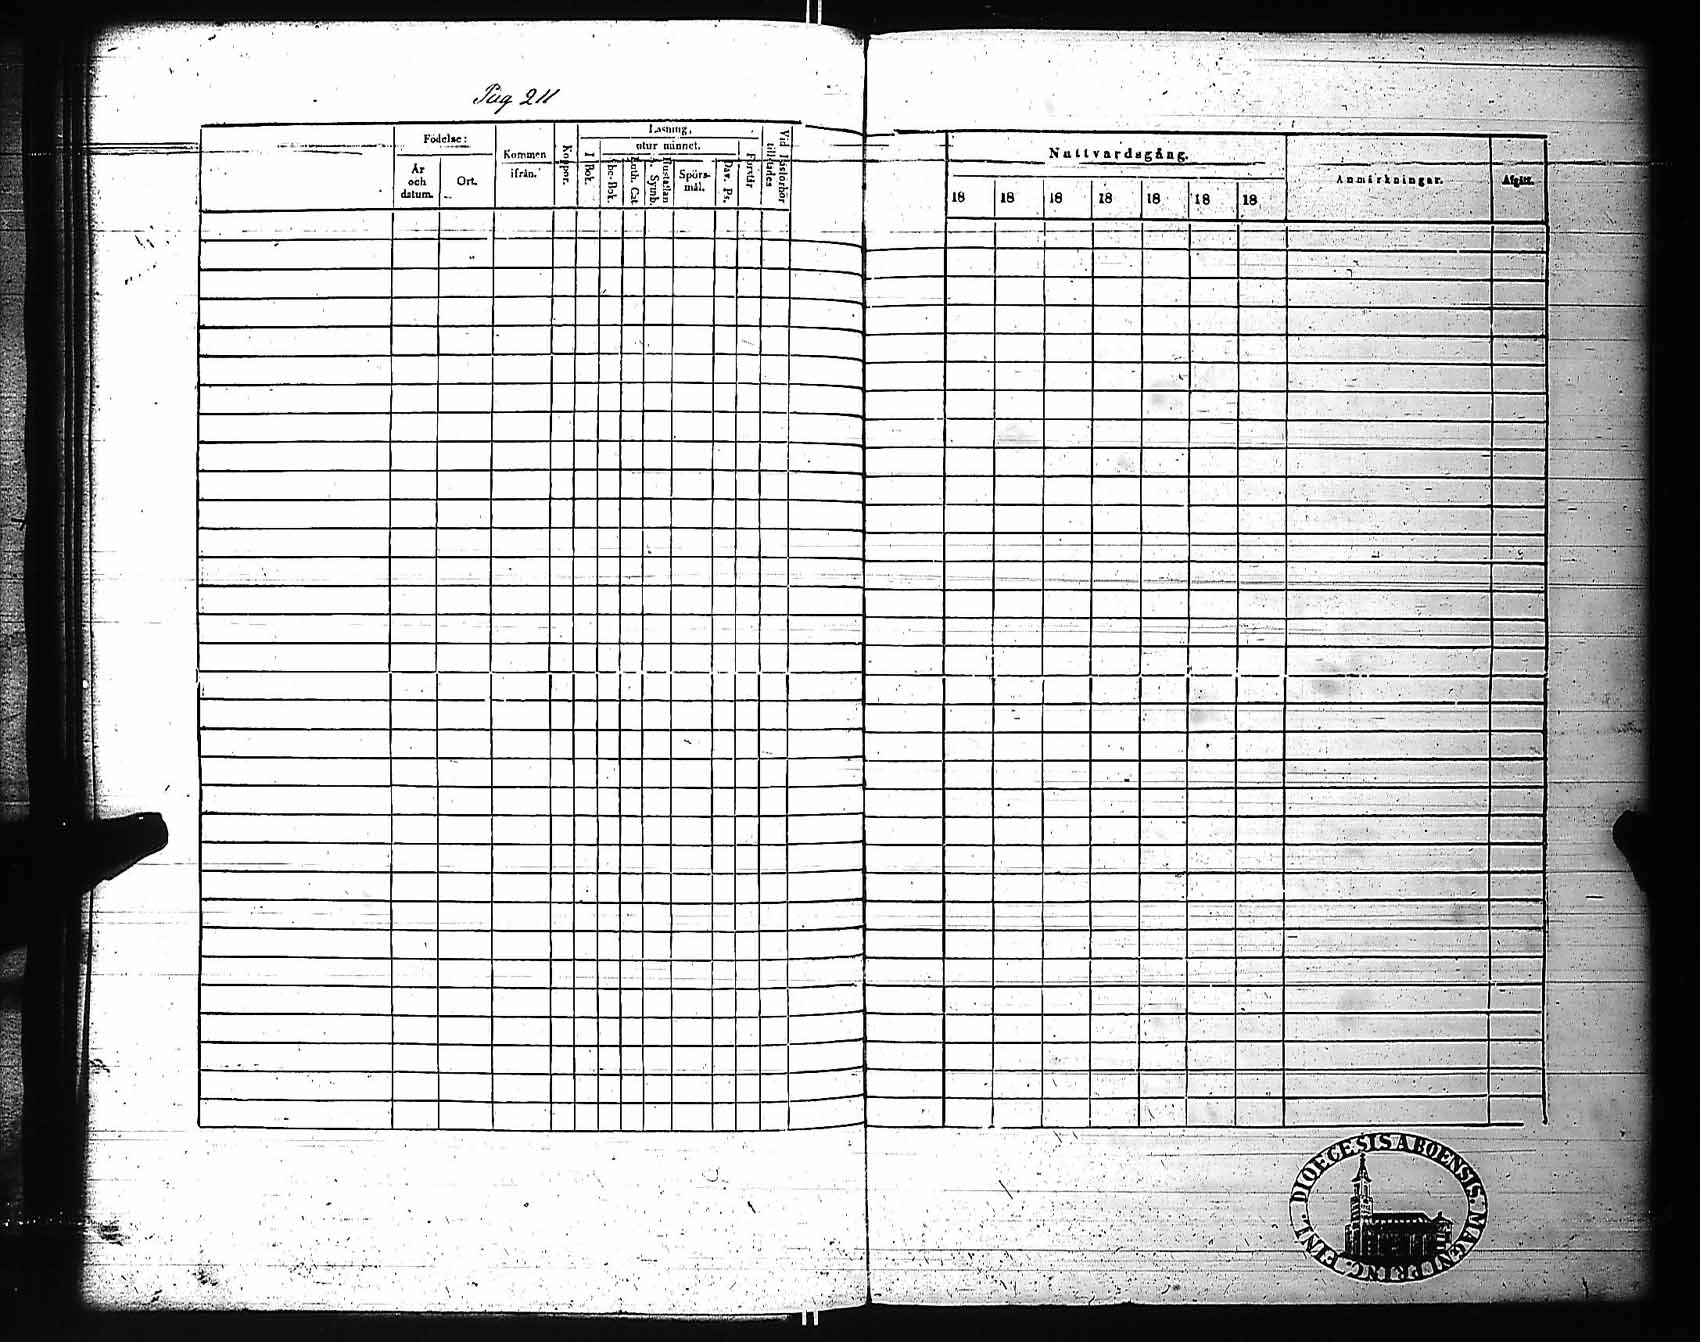 Pag 211
Födelse:
År och datum.
Ort.
Kommen ifrån.
Koppor.
Läsning,
utur minnet.
I Bok.
Abc-Bok.
Luth. Cat.
Hustaflan A. Symb.
Spörsmål.
Dav. Ps.
Förstår
Vid Läsförhör tillstädes
Nattvardsgång.
18 18 18 18 18 18 18
Anmärkningar.
Afgått.
DIOECESIS ABOENSIS. MAGNI PRINC. FINL.